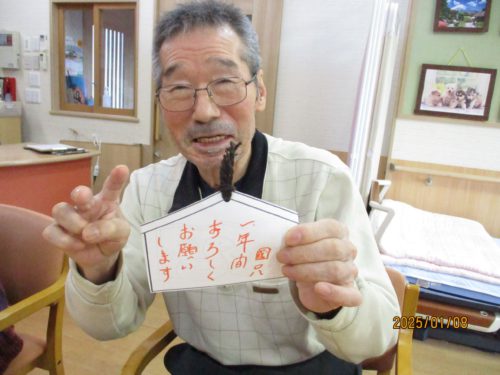 一年間
よろしく
お願い
します
2025/01/08